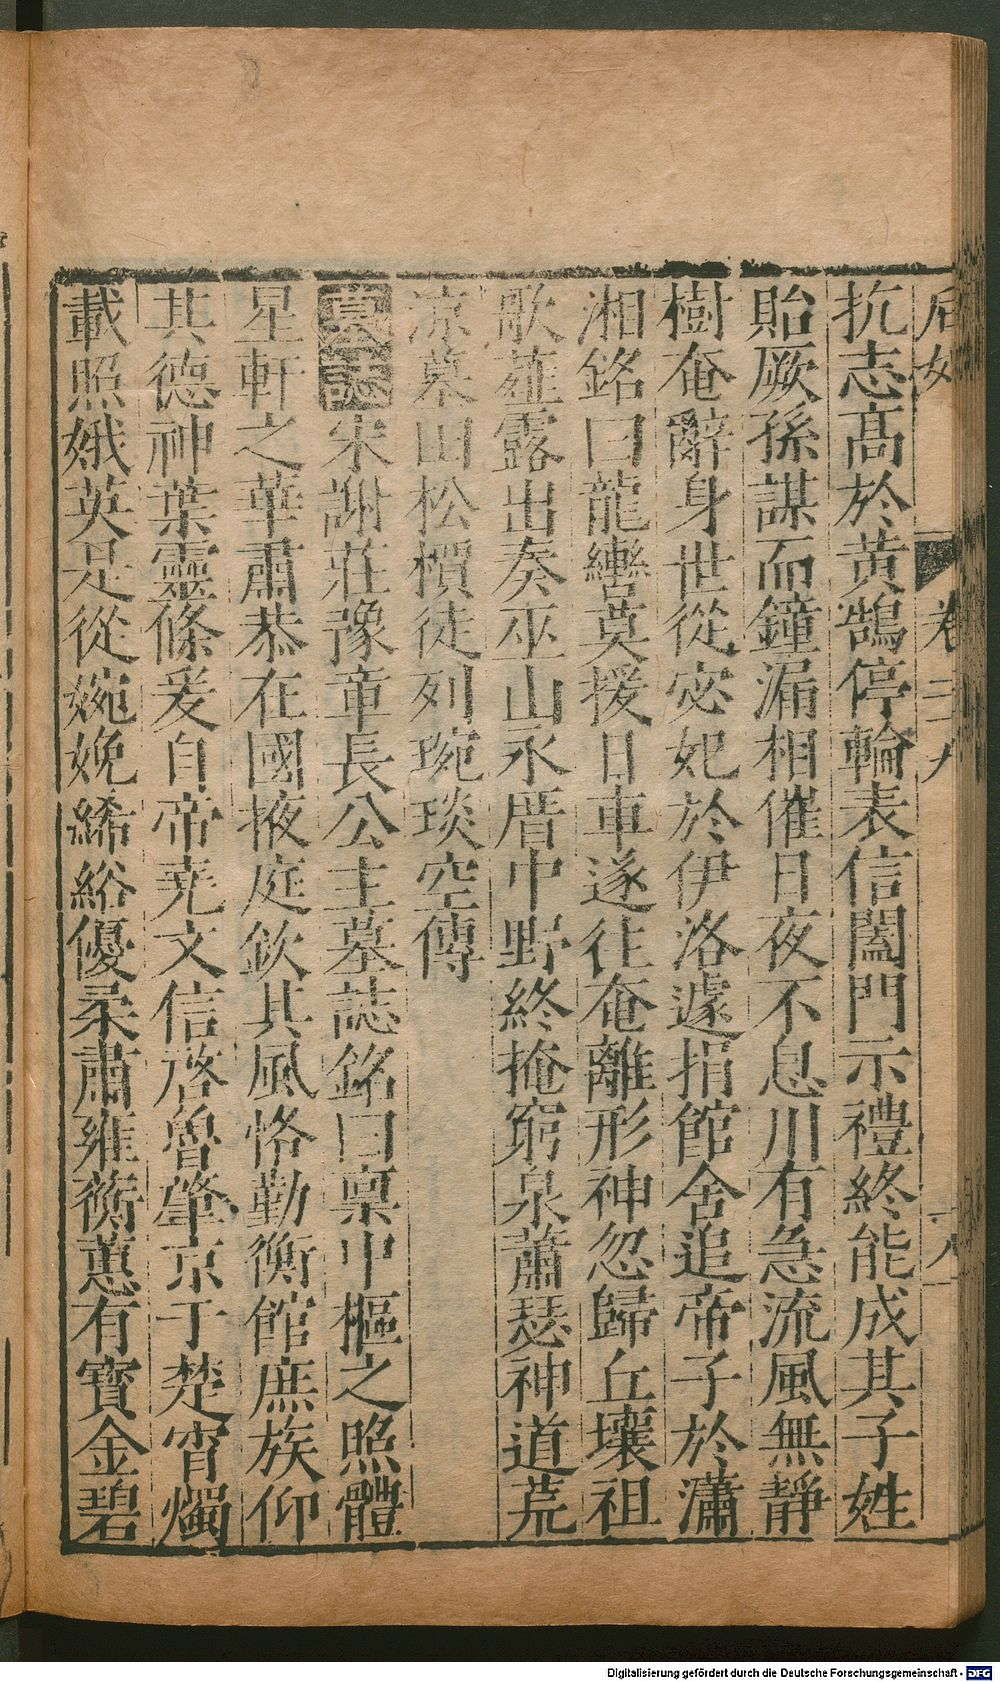 后妃 卷三九 十八
抗志高於黄鵠停輪表信闔門示禮終能成其子姓
貽厥孫謀而鐘漏相催日夜不息川有急流風無靜
樹奄辭身世從宓妃於伊洛遽捐館舍追帝子於瀟
湘銘曰龍轡莫援日車遂往奄離形神忽歸丘壤祖
歌薤露出奏巫山永厝中野終掩窮泉蕭瑟神道荒
涼墓田松檟徒列琬琰空傳
墓誌宋謝莊豫章長公主墓誌銘曰稟中樞之照體
星軒之華肅恭在國掖庭欽其風恪勤衡館庶族仰
其德神葉靈條爰自帝堯文信啓魯肇京于楚宵燭
載照娥英是從婉娩絺綌優柔肅雍蘅蕙有寳金碧
Digitalisierung gefördert durch die Deutsche Forschungsgemeinschaft - DFG